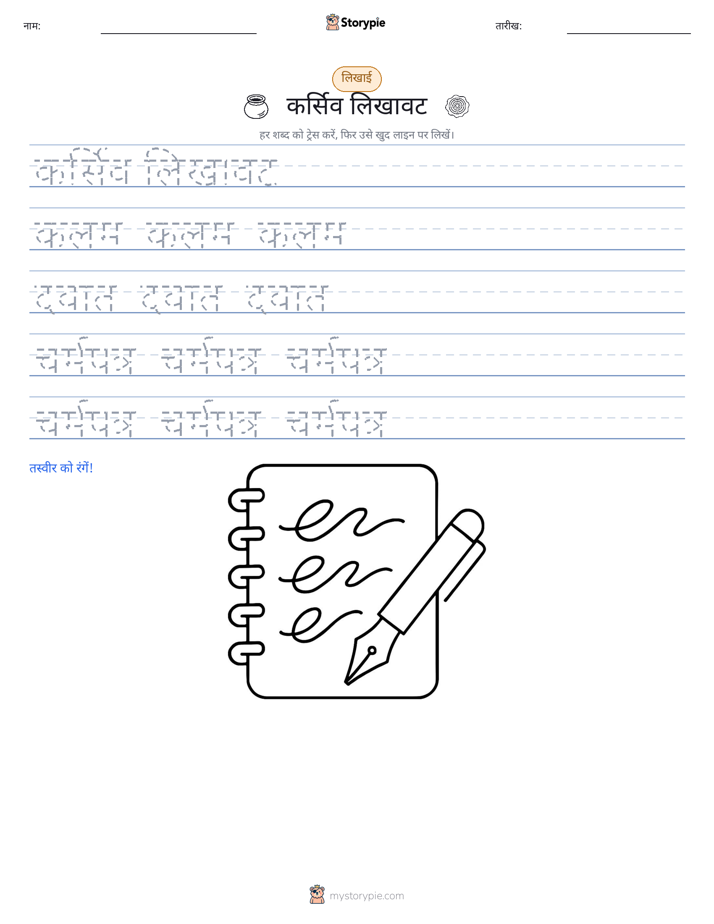 नाम:
Storypie
तारीख:
लिखाई
कर्सिव लिखावट
हर शब्द को ट्रेस करें, फिर उसे खुद लाइन पर लिखें।
कर्सिव लिखावट
कलम कलम कलम
दवात दवात दवात
चर्मपत्र चर्मपत्र चर्मपत्र
चर्मपत्र चर्मपत्र चर्मपत्र
तस्वीर को रंगें!
mystorypie.com